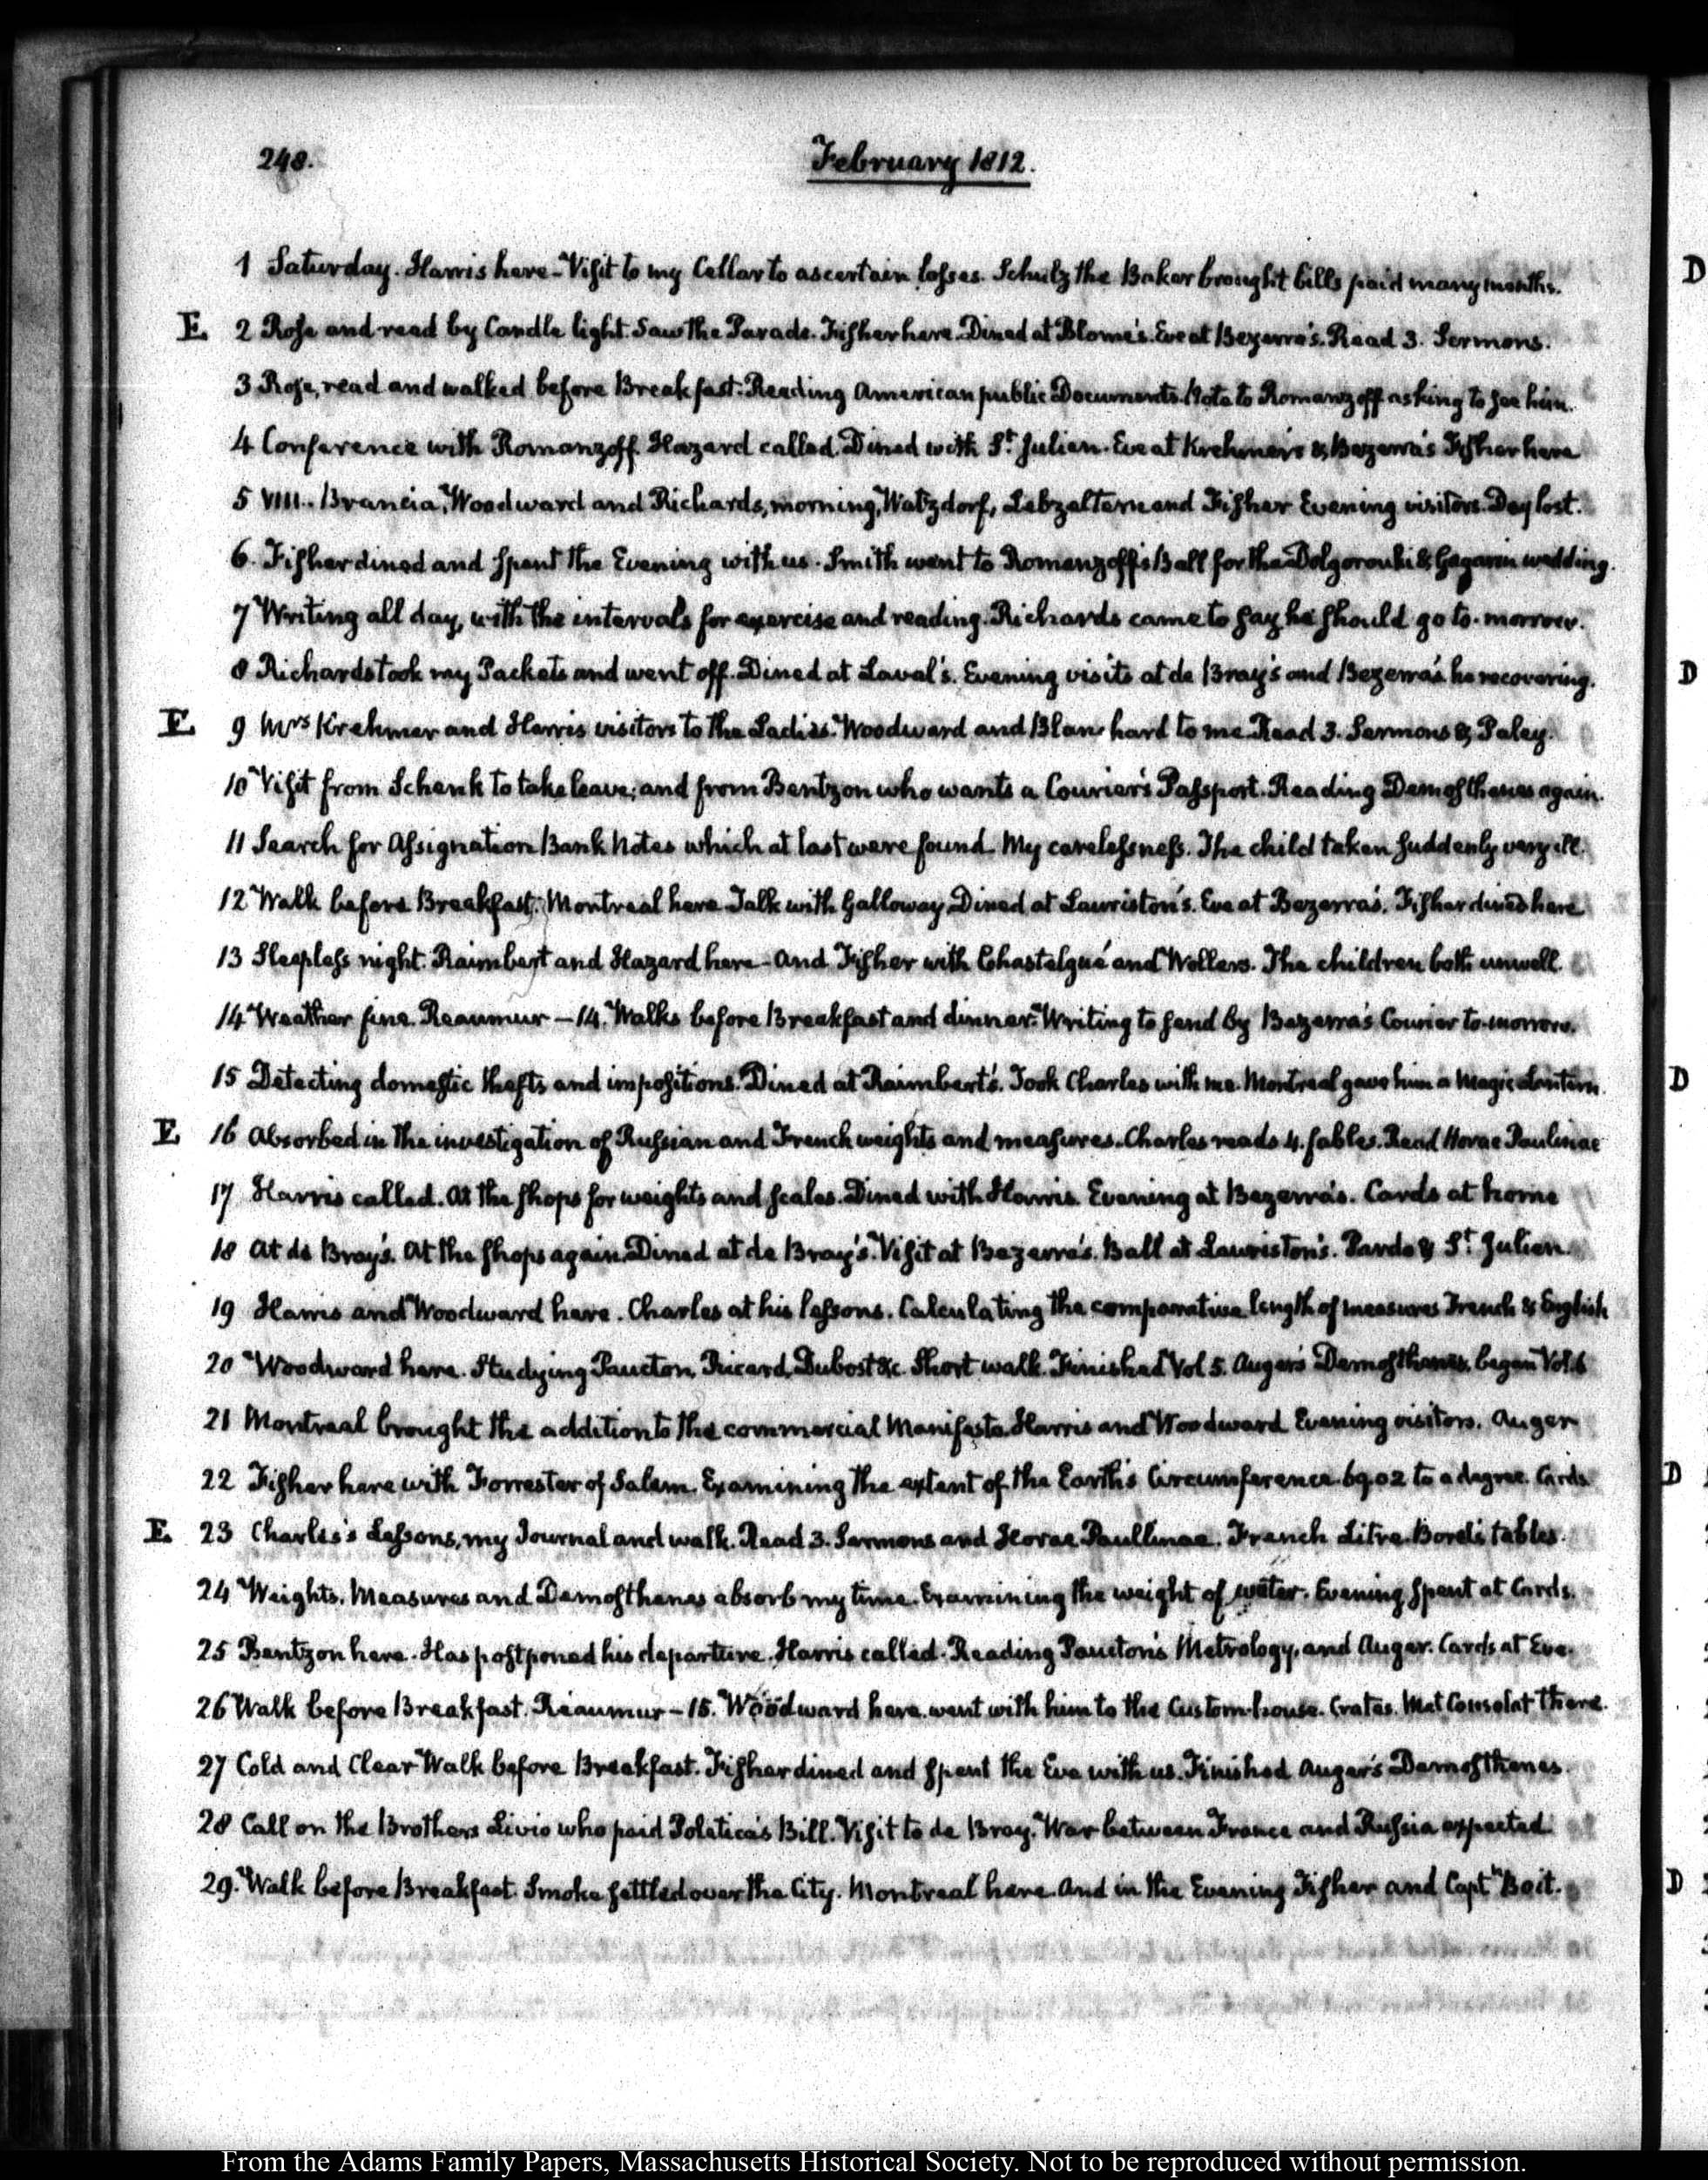 248.
February 1812.
D
1 Saturday. Harris here - Visit to my Cellar to ascertain losses. Schulz the Baker brought bills paid many months.
E 2 Rose and read by Candle light. Saw the Parade. Fisher here. Dined at Blome's. Eve at Bezerra's. Read 3. Sermons.
3 Rose, read and walked before Breakfast. Reading American public Documents. Note to Romanzoff asking to see him.
4 Conference with Romanzoff. Hazard called. Dined with St. Julien. Eve at Krehmer's & Bezerra's Fisher here
5 VIII.. Brancia, Woodward and Richards, morning, Watzdorf, Lebzeltern and Fisher Evening visitors. Day lost.
6. Fisher dined and spent the Evening with us. Smith went to Romanzoff's Ball for the Dolgorouki & Gagarin wedding.
7 Writing all day, with the intervals for exercise and reading. Richards came to say he should go to-morrow.
8 Richards took my Packets and went off. Dined at Laval's. Evening visits at de Bray's and Bezerra's. he recovering.
D
E 9 Mrs Krehmer and Harris visitors to the Ladies. Woodward and Blanchard to me. Read 3. Sermons & Paley.
10 Visit from Schenk to take leave; and from Bentzon who wants a Courier's Passport. Reading Demosthenes again.
11 Search for Assignation Bank Notes which at last were found. My carelessness. The child taken suddenly very ill.
12 Walk before Breakfast. Montreal here. Talk with Galloway. Dined at Lauriston's. Eve at Bezerra's. Fisher dined here
13 Sleepless night. Raimbert and Hazard here - And Fisher with Chastelgué and Wellers. The children both unwell.
14 Weather fine. Reaumur - 14. Walks before Breakfast and dinner. Writing to send by Bezerra's Courier to-morrow.
15 Detecting domestic thefts and impositions. Dined at Raimbert's. Took Charles with me. Montreal gave him a Magic-lantern.
D
E 16 Absorbed in the investigation of Russian and French weights and measures. Charles reads 4. fables. Read Horae Paulinae
17 Harris called. At the shops for weights and scales. Dined with Harris. Evening at Bezerra's. Cards at home
18 At de Bray's. At the shops again. Dined at de Bray's. Visit at Bezerra's. Ball at Lauriston's. Pardo & St. Julien.
19 Harris and Woodward here. Charles at his lessons. Calculating the comparative length of measures French & English
20 Woodward here. Studying Paucton, Ricard, Dubost &c. Short walk. Finished Vol 5. Auger's Demosthenes, began Vol. 6
21 Montreal brought the addition to the commercial Manifesto. Harris and Woodward Evening visitors. Auger
22 Fisher here with Forrester of Salem. Examining the extent of the Earth's Circumference. 69.02 to a degree. Cards
D
E 23 Charles's Lessons, my Journal and walk. Read 3. Sermons and Horae Paullinae. French Litre. Borda's tables.
24 Weights. Measures and Demosthenes absorb my time. Examining the weight of water. Evening spent at Cards.
25 Bentzon here. Has postponed his departure. Harris called. Reading Paucton's Metrology, and Auger. Cards at Eve.
26 Walk before Breakfast. Réaumur - 15. Woodward here. went with him to the Custom-house. Crates. Met Consolat there.
27 Cold and Clear Walk before Breakfast. Fisher dined and spent the Eve with us. Finished Auger's Demosthenes.
28 Call on the Brothers Livio who paid Politica's Bill. Visit to de Bray. War between France and Russia expected.
29. Walk before Breakfast. Smoke settled over the City. Montreal here. And in the Evening Fisher and Captn Boit.
D
From the Adams Family Papers, Massachusetts Historical Society. Not to be reproduced without permission.